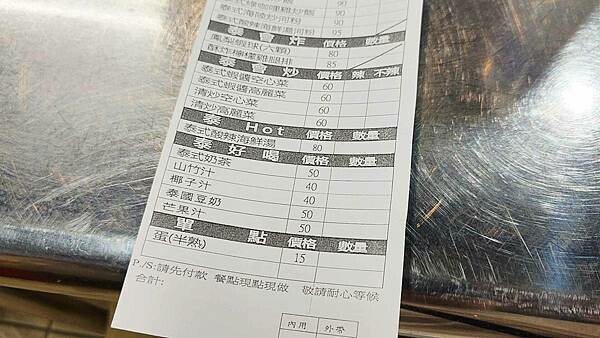 90
泰式綠咖哩雞炒飯 90
泰式海陸炒河粉 90
泰式酸辣海鮮湯河粉 95
泰 會 炸 價格 數量
鳳梨蝦球(六顆) 80
酥炸檸檬雞腿排 85
泰 會 炒 價格 辣 不辣
泰式蝦醬空心菜 60
泰式蝦醬高麗菜 60
清炒空心菜 60
清炒高麗菜 60
泰 Hot 價格 數量
泰式酸辣海鮮湯 80
泰 好 喝 價格 數量
泰式奶茶 50
山竹汁 40
椰子汁 40
泰國豆奶 50
芒果汁 50
單 點 價格 數量
蛋(半熟) 15
P./S:請先付款 餐點現點現做 敬請耐心等候
合計:
內用 外帶